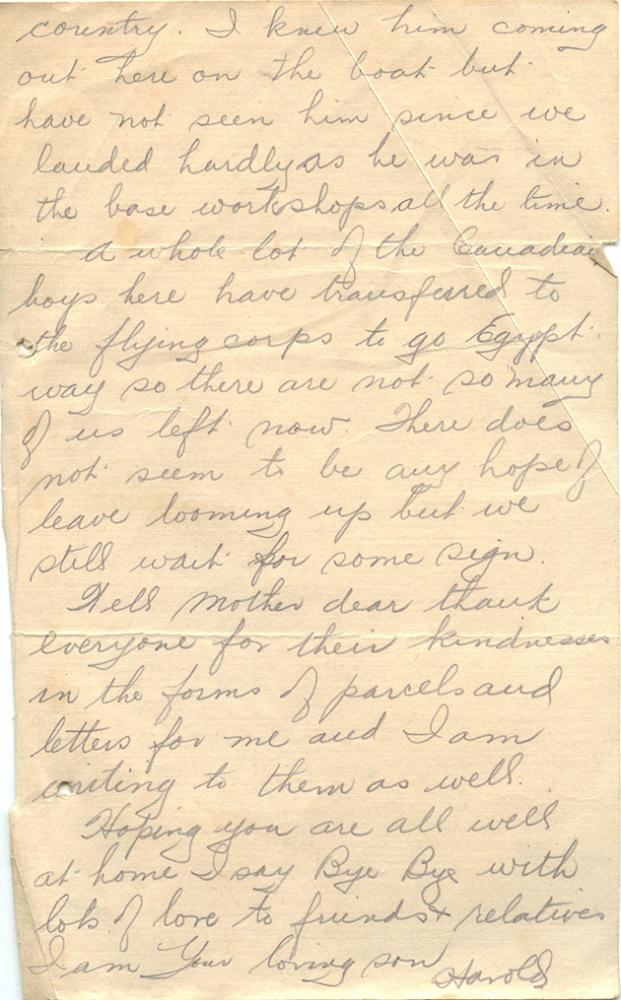 country. I knew him coming
out here on the boat but
have not seen him since we
landed hardly as he was in
the base workshops all the time.
A whole lot of the Canadian
boys here have transferred to
the flying corps to go Egypt
way so there are not so many
of us left now. There does
not seem to be any hope of
leave looming up but we
still wait for some sign.
Well Mother dear thank
everyone for their kindnesses
in the forms of parcels and
letters for me and I am
writing to them as well.
Hoping you are all well
at home I say Bye Bye with
lots of love to friends & relatives
I am Your loving son
Harold